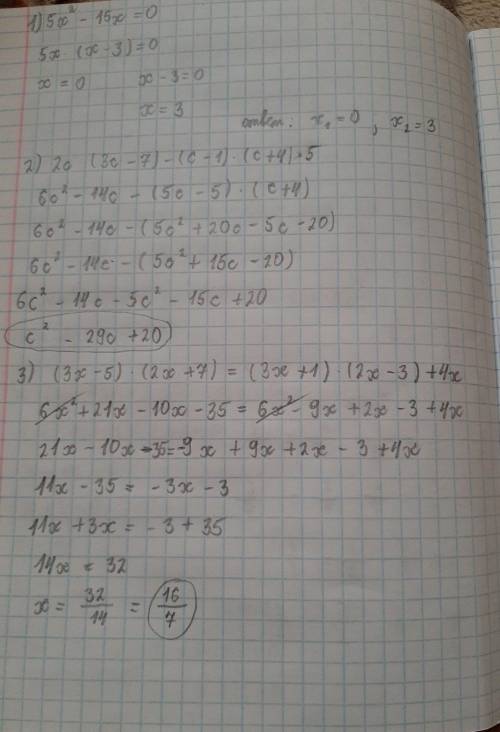 1) 5x² - 15x = 0
5x · (x - 3) = 0
x = 0 x - 3 = 0
x = 3
ответ: x₁ = 0, x₂ = 3
2) 2c (3c - 7) - (c - 1) · (c + 4) · 5
6c² - 14c - (5c - 5) · (c + 4)
6c² - 14c - (5c² + 20c - 5c - 20)
6c² - 14c - (5c² + 15c - 20)
6c² - 14c - 5c² - 15c + 20
c² - 29c + 20
3) (3x - 5) · (2x + 7) = (3x + 1) · (2x - 3) + 4x
6x² + 21x - 10x - 35 = 6x² - 9x + 2x - 3 + 4x
21x - 10x - 35 = -9x + 9x + 2x - 3 + 4x
11x - 35 = - 3x - 3
11x + 3x = - 3 + 35
14x = 32
x = 32/14 = 16/7